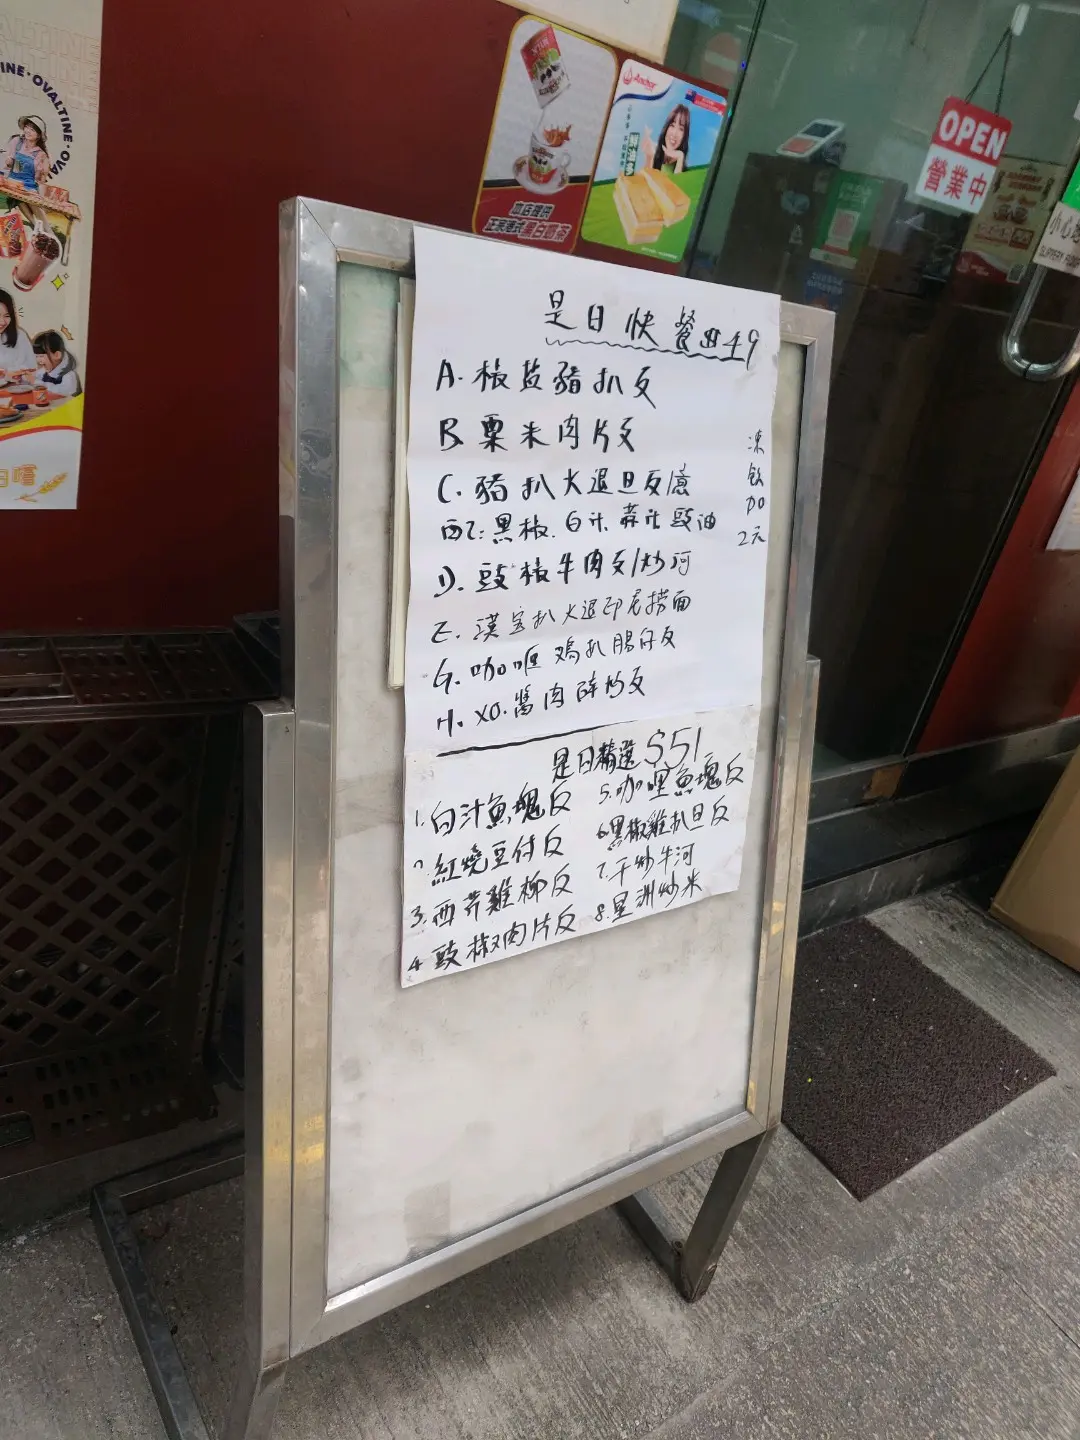 OVALTINE
INE·OVALTINE·OVA
Anchor
OPEN
營業中
小心地
SLIPPERY FLOOR
是日快餐$49
A.椒盐豬扒反
B.粟米肉片反
C.豬扒火退旦反意
配乙:黑椒.白汁.蒜汁豉油
D.豉椒牛肉反/炒河
E.漢宝扒火退印尼捞面
G.咖喱鸡扒腸仔反
H.XO.醬肉碎炒反
凍飲加2元
是日精選$51
1.白汁魚塊反
2.紅燒豆付反
3.西芹雞柳反
4.豉椒肉片反
5.咖喱魚塊反
6.黑椒雞扒旦反
7.干炒牛河
8.星洲炒米